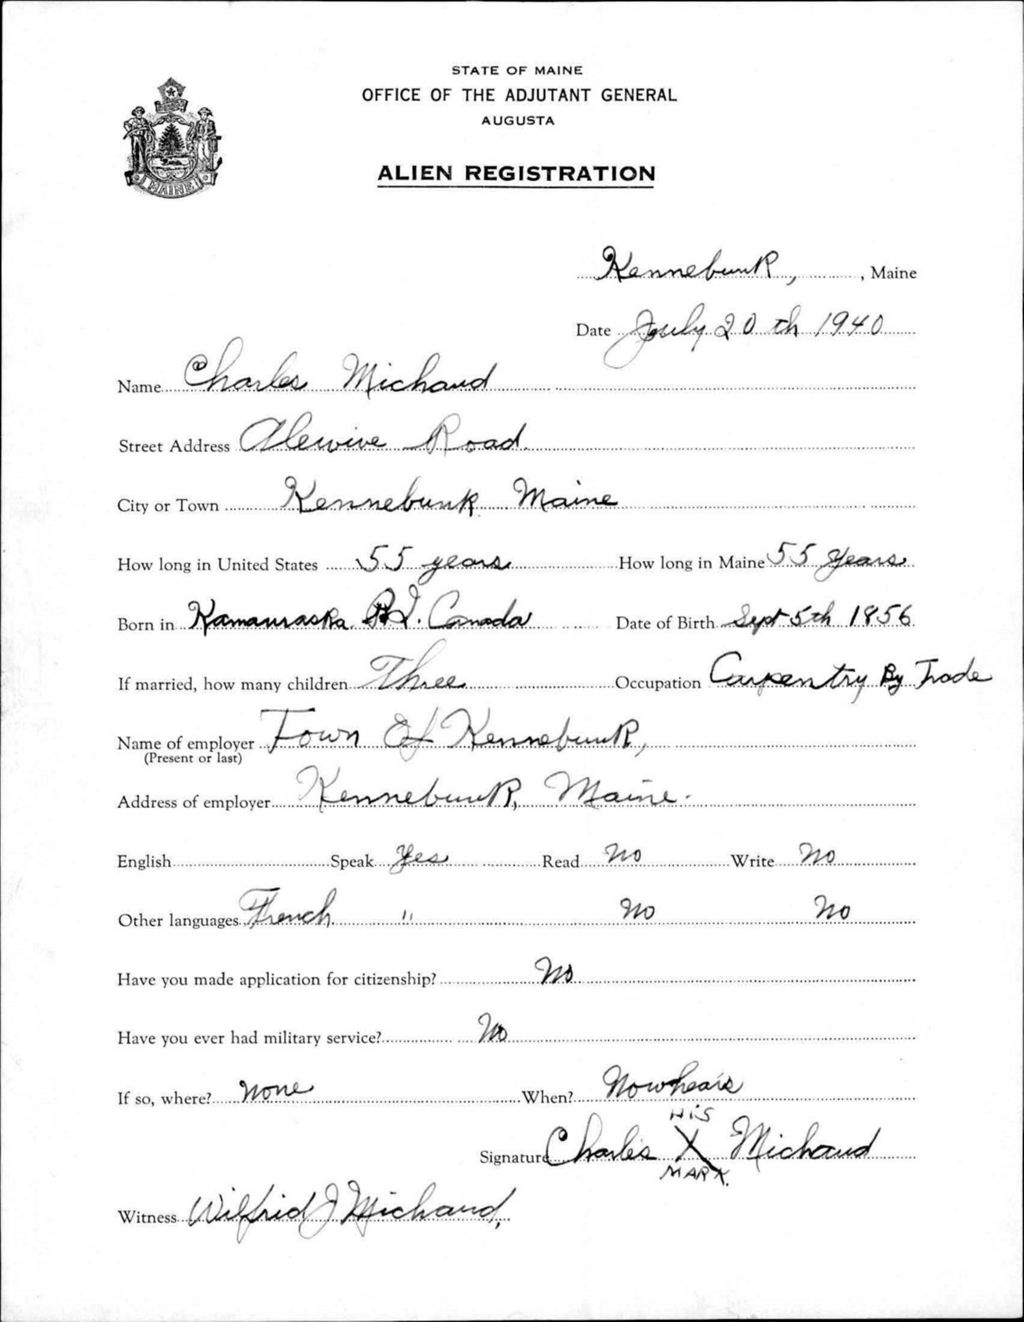 STATE OF MAINE
OFFICE OF THE ADJUTANT GENERAL
AUGUSTA
ALIEN REGISTRATION
MAINE
Kennebunk, , Maine
Date July 20th 1940
Name Charles Michaud
Street Address Alewive Road
City or Town Kennebunk Maine
How long in United States 55 years How long in Maine 55 Years
Born in Kamauraska Canada Date of Birth Sept 5th 1856
If married, how many children Three Occupation Carpentry By Trade
Name of employer Town Of Kennebunk,
(Present or last)
Address of employer Kennebunk, Maine.
English Speak Yes Read No Write No
Other languages French " No No
Have you made application for citizenship? No
Have you ever had military service? No
If so, where? None When? Nowhears
HIS
Signature Charles X Michaud
MARK.
Witness Wilfrid J Michaud,